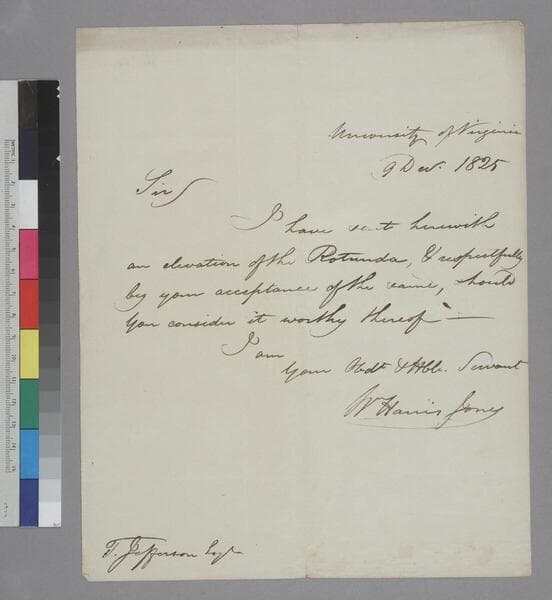 University of Virginia
9 Dec. 1825
Sir
I have sent herewith
an elevation of the Rotunda, & respectfully
beg your acceptance of the same, should
you consider it worthy thereof —
I am
your Obdt & Hble. Servant
Wm Harris Jones
T. Jefferson Esqr